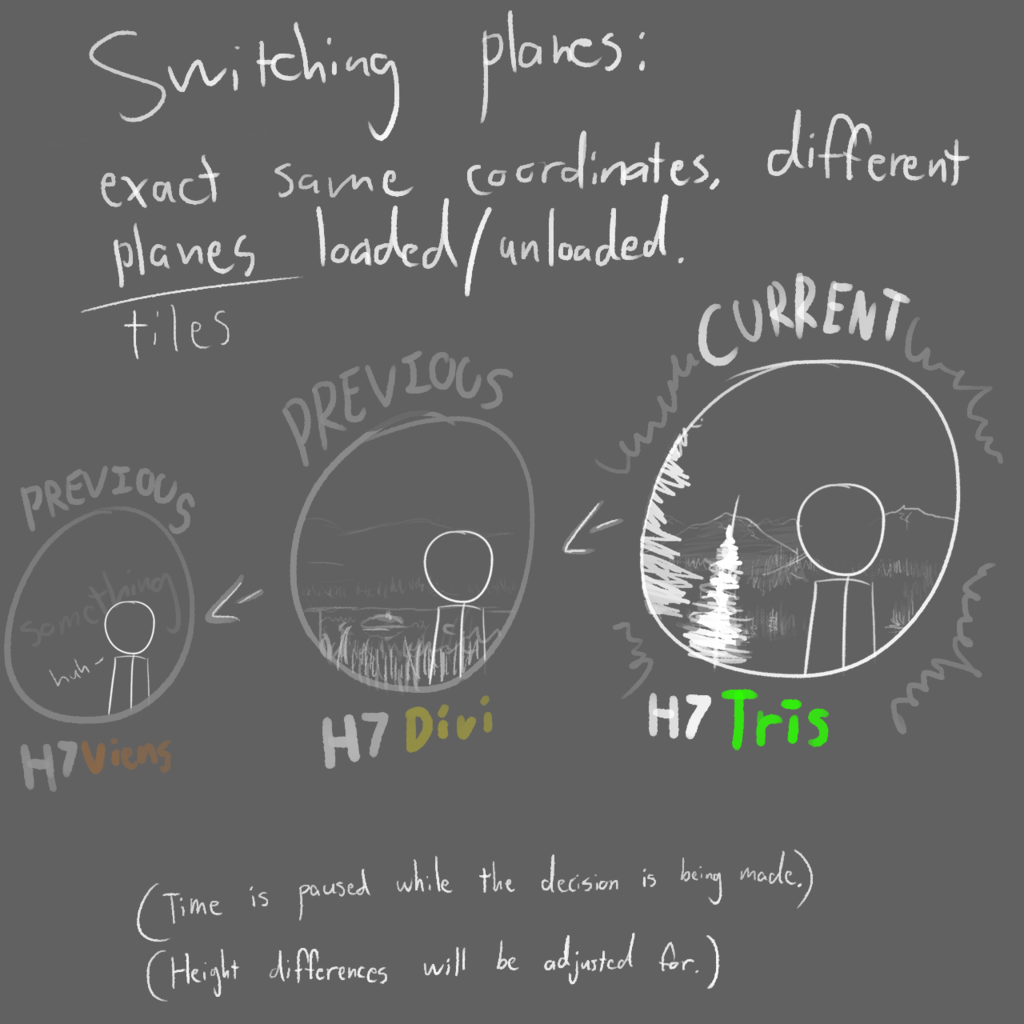 Switching planes:
exact same coordinates, different
planes loaded/unloaded.
tiles
CURRENT
PREVIOUS
PREVIOUS
something
huh-
H7 Viens
H7 Divi
H7 Tris
(Time is paused while the decision is being made.)
(Height differences will be adjusted for.)